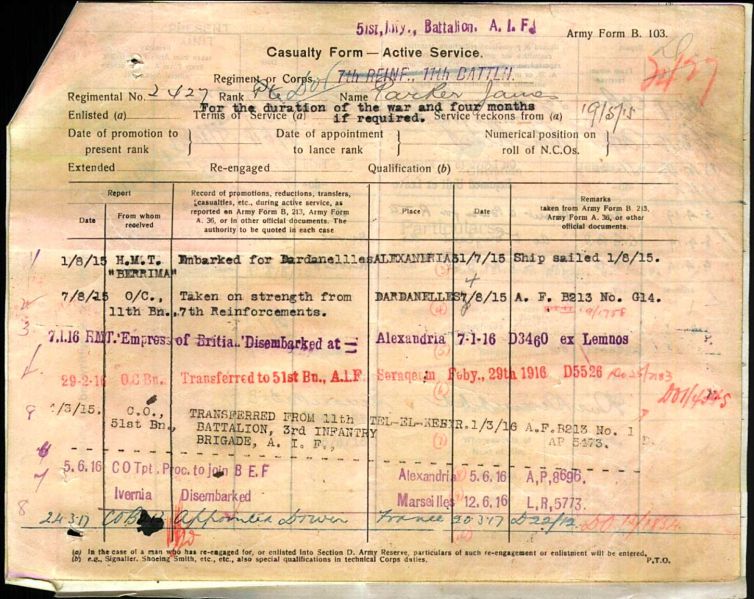 51st, Inf., Battalion. A. I. F.
Army Form B. 103.
Casualty Form — Active Service.
2427
Regiment or Corps 7th REINF., 11th BATTLN.
Regimental No. 2427 Rank Name Parker James
For the duration of the war and four months
Enlisted (a) Terms of Service (a) if required. Service reckons from (a) 19/5/15
Date of promotion to present rank
Date of appointment to lance rank
Numerical position on roll of N.C.Os.
Extended Re-engaged Qualification (b)
Report
Date
From whom received
Record of promotions, reductions, transfers, casualties, etc., during active service, as reported on Army Form B, 213, Army Form A. 36, or in other official documents. The authority to be quoted in each case
Place
Date
Remarks
taken from Army Form B. 213, Army Form A. 36, or other official documents.
1/8/15 H.M.T. Embarked for Dardanellles ALEXANDRIA 31/7/15 Ship sailed 1/8/15.
"BERRIMA"
7/8/15 O/C., Taken on strength from DARDANELLES 7/8/15 A. F. B213 No. G14.
11th Bn., 7th Reinforcements.
7.1.16 RMT. 'Empress of Britia.' Disembarked at Alexandria 7-1-16 D3460 ex Lemnos
29-2-16 O.C Bn., Transferred to 51st Bn., A.I.F. Serapeum Feby., 29th 1916 D5526
/3/15. C.O., TRANSFERRED FROM 11th TEL-EL-KEBYR. 1/3/16 A.F.B213 No. 1
51st Bn., BATTALION, 3rd INFANTRY AP 5473.
BRIGADE, A. I. F.,
5.6.16 C O Tpt. Proc. to join B E F Alexandria 5.6.16 A,P,8696.
Ivernia Disembarked Marseilles 12.6.16 L,R,5773.
24.3.17 Appointed Driver France 20.3.17 D22/12
(a) In the case of a man who has re-engaged for, or enlisted into Section D. Army Reserve, particulars of such re-engagement or enlistment will be entered.
(b) e.g., Signaller. Shoeing Smith, etc., etc., also special qualifications in technical Corps duties.
P.T.O.